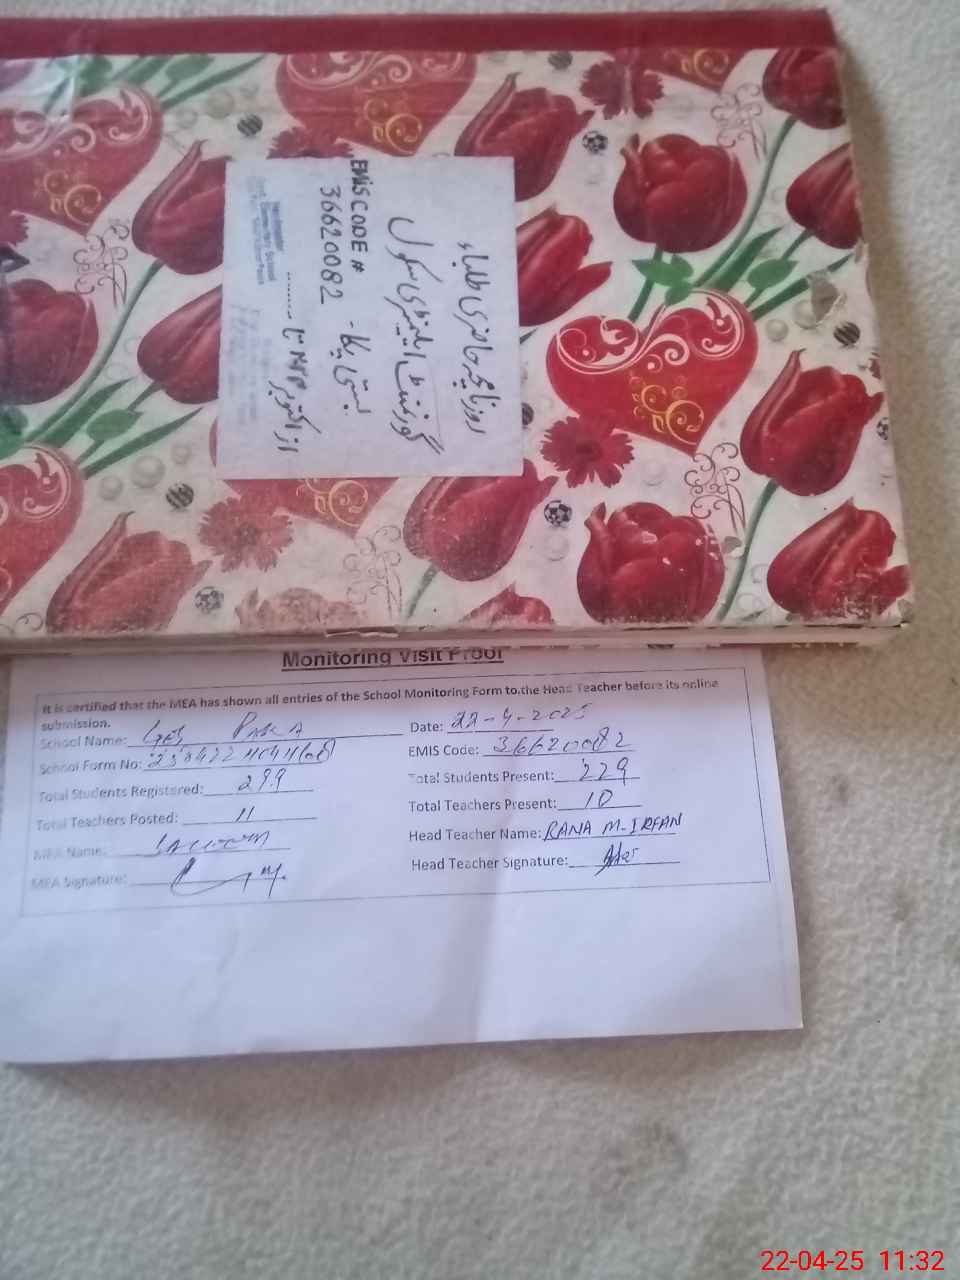 روزنامچہ حاضری طلباء
گورنمنٹ ایلیمنٹری سکول
بستی پکا -
EMIS CODE #
36620082
Headmaster
Elementary School
Monitoring Visit Proof
It is certified that the MEA has shown all entries of the School Monitoring Form to the Head Teacher before its online
submission.
School Name: GES PAKA
Date: 22-4-2025
School Form No:
EMIS Code: 36620082
Total Students Registered: 299
Total Students Present: 229
Total Teachers Posted: 11
Total Teachers Present: 10
MEA Name:
Head Teacher Name: RANA M-IRFAN
MEA Signature:
Head Teacher Signature:
22-04-25 11:32